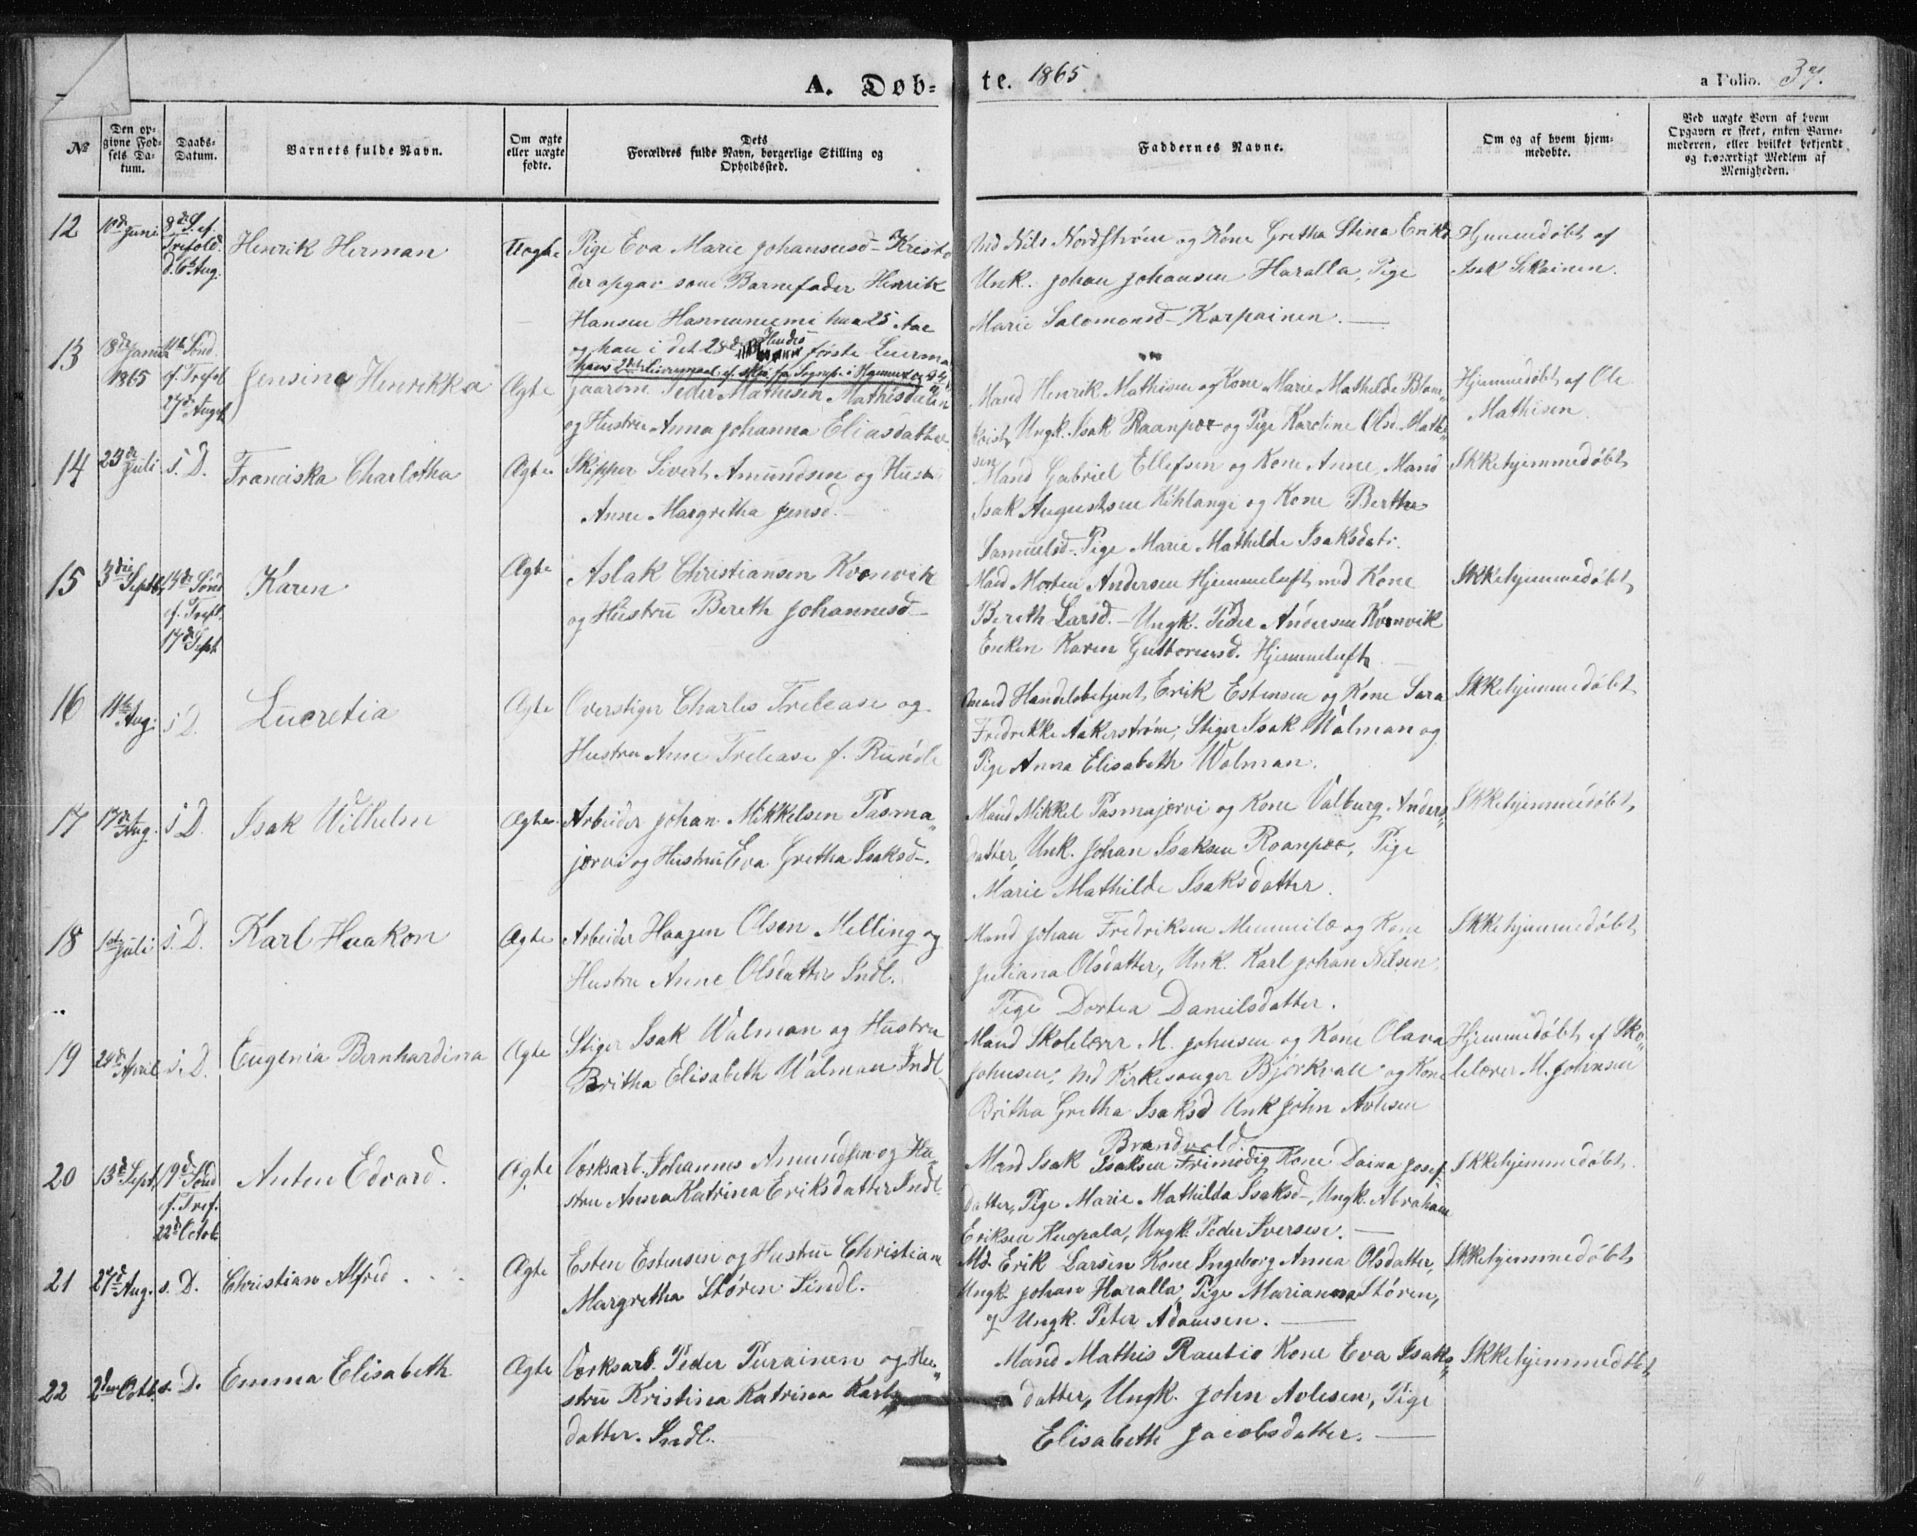 A. Døb-
te. 1865
a Folio. 37.
No
Den op-
givne Fød-
sels Da-
tum.
Daabs-
Datum.
Barnets fulde Navn.
Om ægte
eller uægte
fødte.
Dets
Forældres fulde Navn, borgerlige Stilling og
Opholdssted.
Faddernes Navne.
Om og af hvem hjem-
medøbte.
Ved uægte Børn af hvem
Opgaven er skeet, enten Barne-
moderen, eller hvilket bekjendt
og troværdigt Medlem af
Menigheden.
12
Juni
8de S. ef.
Trefold.
d. 6te Aug.
Henrik Herman
Uægte
Pige Eva Marie Johannesd-
der opgav som Barnefader Henrik
Hansen
og han i det 28de Hendes første Leierma
Nils Nordstrøm og Kone Gretha Stina Eriksd
Unk. Johan Johansen Haralla, Pige
Marie Salomonsd- Karpainen.
Hjemmedøbt af
Isak Sikainen.
13
1865
11te Sønd.
ef. Trefol
27de Augst
Jensine Henrikka
Ægte
Gaardm. Peder Mathisen Mathisdalen
og Hustru Anna Johanna Eliasdatter
Mand Henrik Mathisen og Kone Marie Mathilde
Ungk. Isak Raanpæ og Pige Karoline Olsd. Mathi-
sen
Hjemmedøbt af Ole
Mathisen.
14
23de Juli
s. D.
Franciska Charlotha
Ægte
Skipper Sivert Amundsen og Hustr
Anne Margretha Jensd.
Mand Gabriel Ellefsen og Kone Anne, Mand
Isak Augustsen Kihlangi og Kone Bertha
Samuelsd- Pige Marie Mathilde Isaksdatr.
Ikkehjemmedøbt
15
3die Septb.
14de Sønd
ef. Trefl.
17de Sept.
Karen
Ægte
Aslak Christiansen Kvænvik
og Hustru Bereth Johannesd-
Mand Morten Andersen Hjemmeluft med Kone
Bereth Larsd. - Ungk. Peder Andersen Kvænvik
Enken Karen Guttormsd. Hjemmeluft
Ikkehjemmedøbt
16
11te Aug.
s. D.
Lucretia
Ægte
Overstiger Charles Trelease og
Hustru Anne Trelease f. Rundle
Mand Handelsbetjent Erik Estensen og Kone Sara
Fredrikke Aakerstrøm, Stiger Isak Walman og
Pige Anna Elisabeth Walman.
Ikkehjemmedøbt
17
17de Aug.
s. D.
Isak Wilhelm
Ægte
Arbeider Johan Mikkelsen Pasma-
jærvi og Hustru Eva Gretha Isaksd-.
Mand Mikkel Pasmajærvi og Kone Valburg Anders-
datter, Unk. Johan Isaksen Raanpæ, Pige
Marie Mathilde Isaksdatter.
Ikkehjemmedøbt
18
1ste Juli
s. D.
Karl Haakon
Ægte
Arbeider Haagen Olsen Melling og
Hustru Anne Olsdatter Indl.
Mand Johan Fredriksen Mummila og Kone
Juliana Olsdatter, Unk. Karl Johan Nilsen,
Pige Dortea Danielsdatter.
Ikkehjemmedøbt
19
24de April
s. D.
Eugenia Bernhardina
Ægte
Stiger Isak Walman og Hustru
Britha Elisabeth Walman Indl.
Mand Skolelærer M. Johnsen og Kone Olava
Johnsen, Md Kirkesanger Bjørkvall og Kone
Britha Gretha Isaksd Unk John Avlesen
Hjemmedøbt af Sko-
lelærer M. Johnsen
20
13de Sept.
19de Sønd
ef. Tref.
22de Octob.
Anton Edvard.
Ægte
Værksarb. Johannes Amundsen og Hu-
stru Anna Katrina Eriksdatter Indl.
Brandvold.
Mand Isak Isaksen Frimodig Kone Daina Josef-
datter, Pige Marie Mathilda Isaksd-, Ungk. Abraham
Eriksen Kuopala, Ungk. Peder Iversen.
Ikkehjemmedøbt.
21
27de Aug.
s. D.
Christian Alfred
Ægte
Esten Estensen og Hustru Christiane
Margretha Støren Indl.
Md. Erik Larsen Kone Ingeborg Anna Olsdatter,
Ungk. Johan Haralla, Pige Marianna Støren,
og Ungk. Peter Adamsen.
Ikkehjemmedøbt
22
2den Octb.
s. D.
Emma Elisabeth
Ægte
Værksarb. Peder Purainen og Hu-
stru Kristina Katrina Karls-
datter. Indl.
Mand Mathis Rautio Kone Eva Isaks-
datter, Ungk. John Avlesen, Pige
Elisabeth Jacobsdatter.
Ikkehjemmedøbt